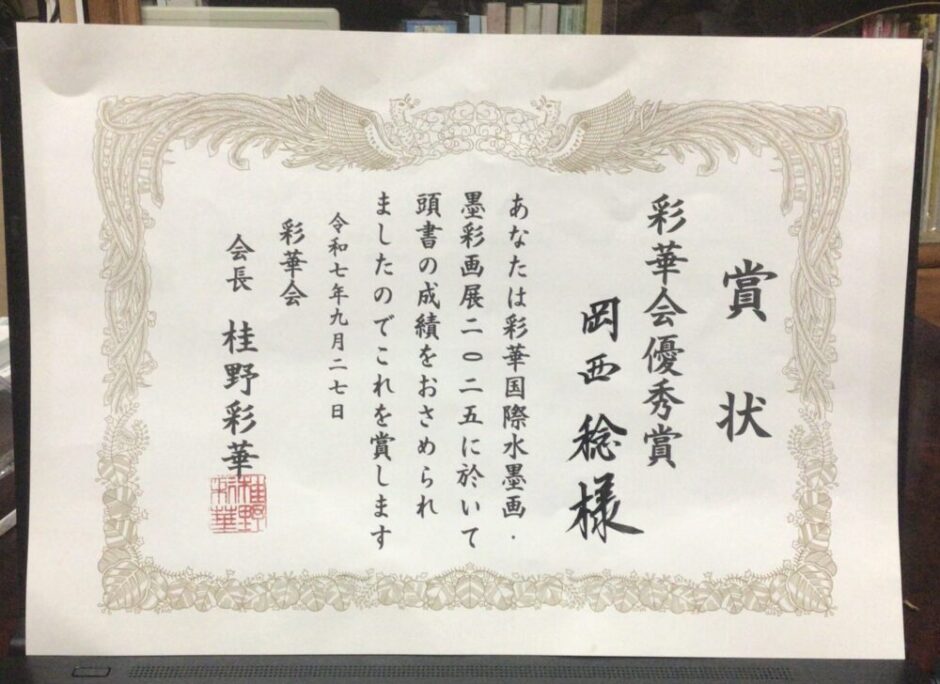 賞状
彩華会優秀賞
岡西稔様
あなたは彩華国際水墨画・
墨彩画展二〇二五に於いて
頭書の成績をおさめられ
ましたのでこれを賞します
令和七年九月二七日
彩華会
会長 桂野彩華
桂野
彩華